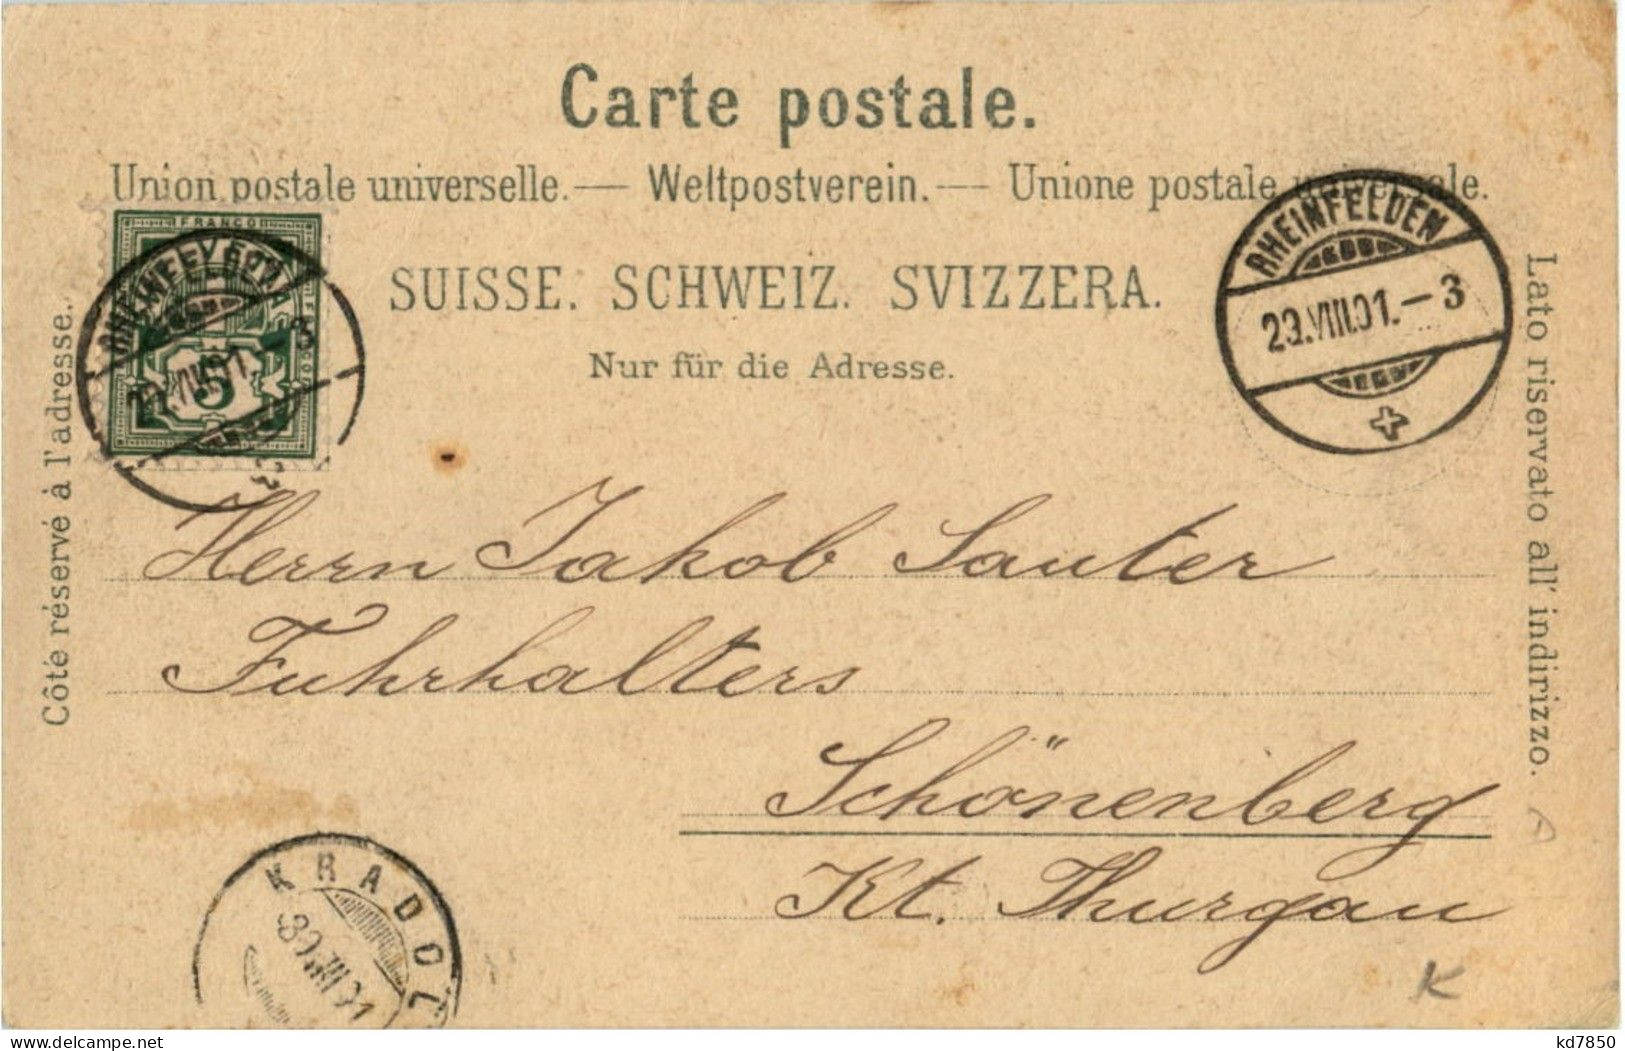 Carte postale.
Union postale universelle. — Weltpostverein. — Unione postale universale.
FRANCO
RHEINFELDEN
SUISSE. SCHWEIZ. SVIZZERA.
29.VIII.01.–3
Nur für die Adresse.
5
Côté réservé à l'adresse.
Lato riservato all' indirizzo.
Herrn Jakob Sauter
Fuhrhalters
Schönenberg
Kt. Thurgau
KRADOL
30.VIII.01
K
delcampe.net
kd7850